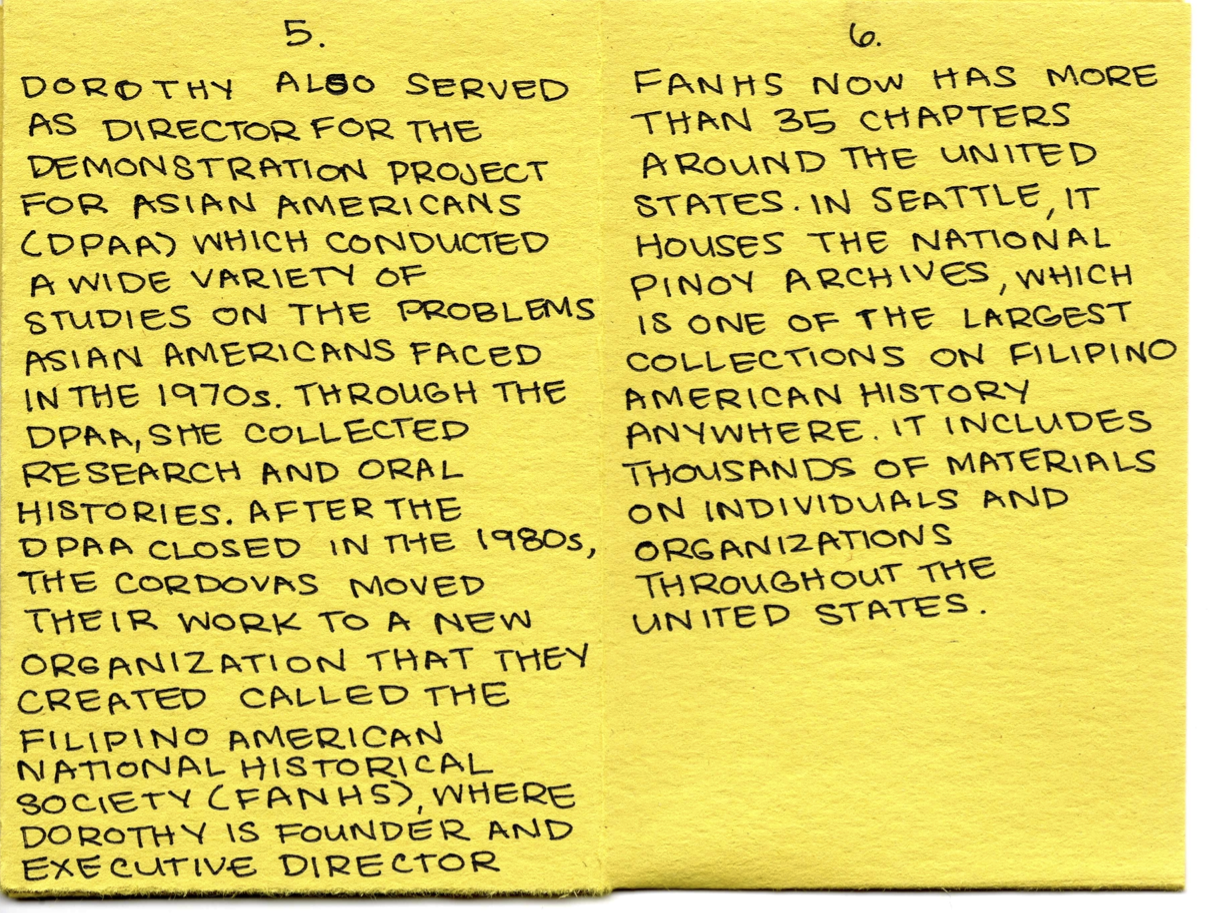 5.
DOROTHY ALSO SERVED
AS DIRECTOR FOR THE
DEMONSTRATION PROJECT
FOR ASIAN AMERICANS
(DPAA) WHICH CONDUCTED
A WIDE VARIETY OF
STUDIES ON THE PROBLEMS
ASIAN AMERICANS FACED
IN THE 1970s. THROUGH THE
DPAA, SHE COLLECTED
RESEARCH AND ORAL
HISTORIES. AFTER THE
DPAA CLOSED IN THE 1980s,
THE CORDOVAS MOVED
THEIR WORK TO A NEW
ORGANIZATION THAT THEY
CREATED CALLED THE
FILIPINO AMERICAN
NATIONAL HISTORICAL
SOCIETY (FANHS), WHERE
DOROTHY IS FOUNDER AND
EXECUTIVE DIRECTOR
6.
FANHS NOW HAS MORE
THAN 35 CHAPTERS
AROUND THE UNITED
STATES. IN SEATTLE, IT
HOUSES THE NATIONAL
PINOY ARCHIVES, WHICH
IS ONE OF THE LARGEST
COLLECTIONS ON FILIPINO
AMERICAN HISTORY
ANYWHERE. IT INCLUDES
THOUSANDS OF MATERIALS
ON INDIVIDUALS AND
ORGANIZATIONS
THROUGHOUT THE
UNITED STATES.